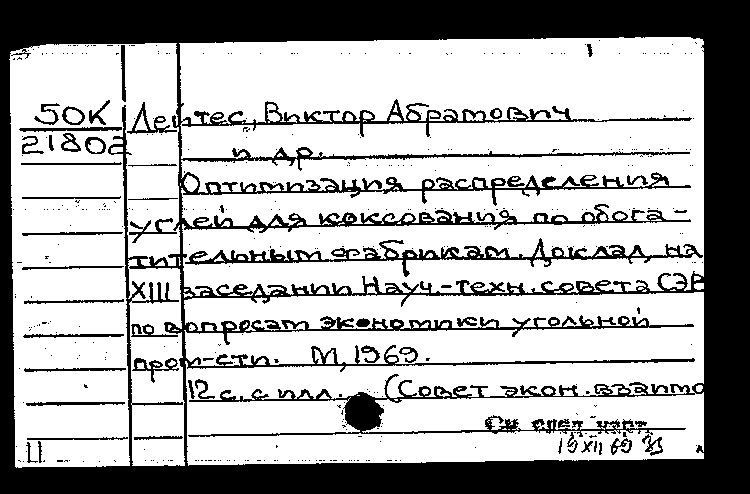 50К Лейтес, Виктор Абрамович
21802 и др.
Оптимизация распределения
углей для коксования по обога-
тительным фабрикам. Доклад на
XIII заседании Науч.-техн. совета СЭВ
по вопросам экономики угольной
пром-сти. М, 1969.
12 с. с илл. (Совет экон. взаимо
См. спец. карт.
19 XII 69
11